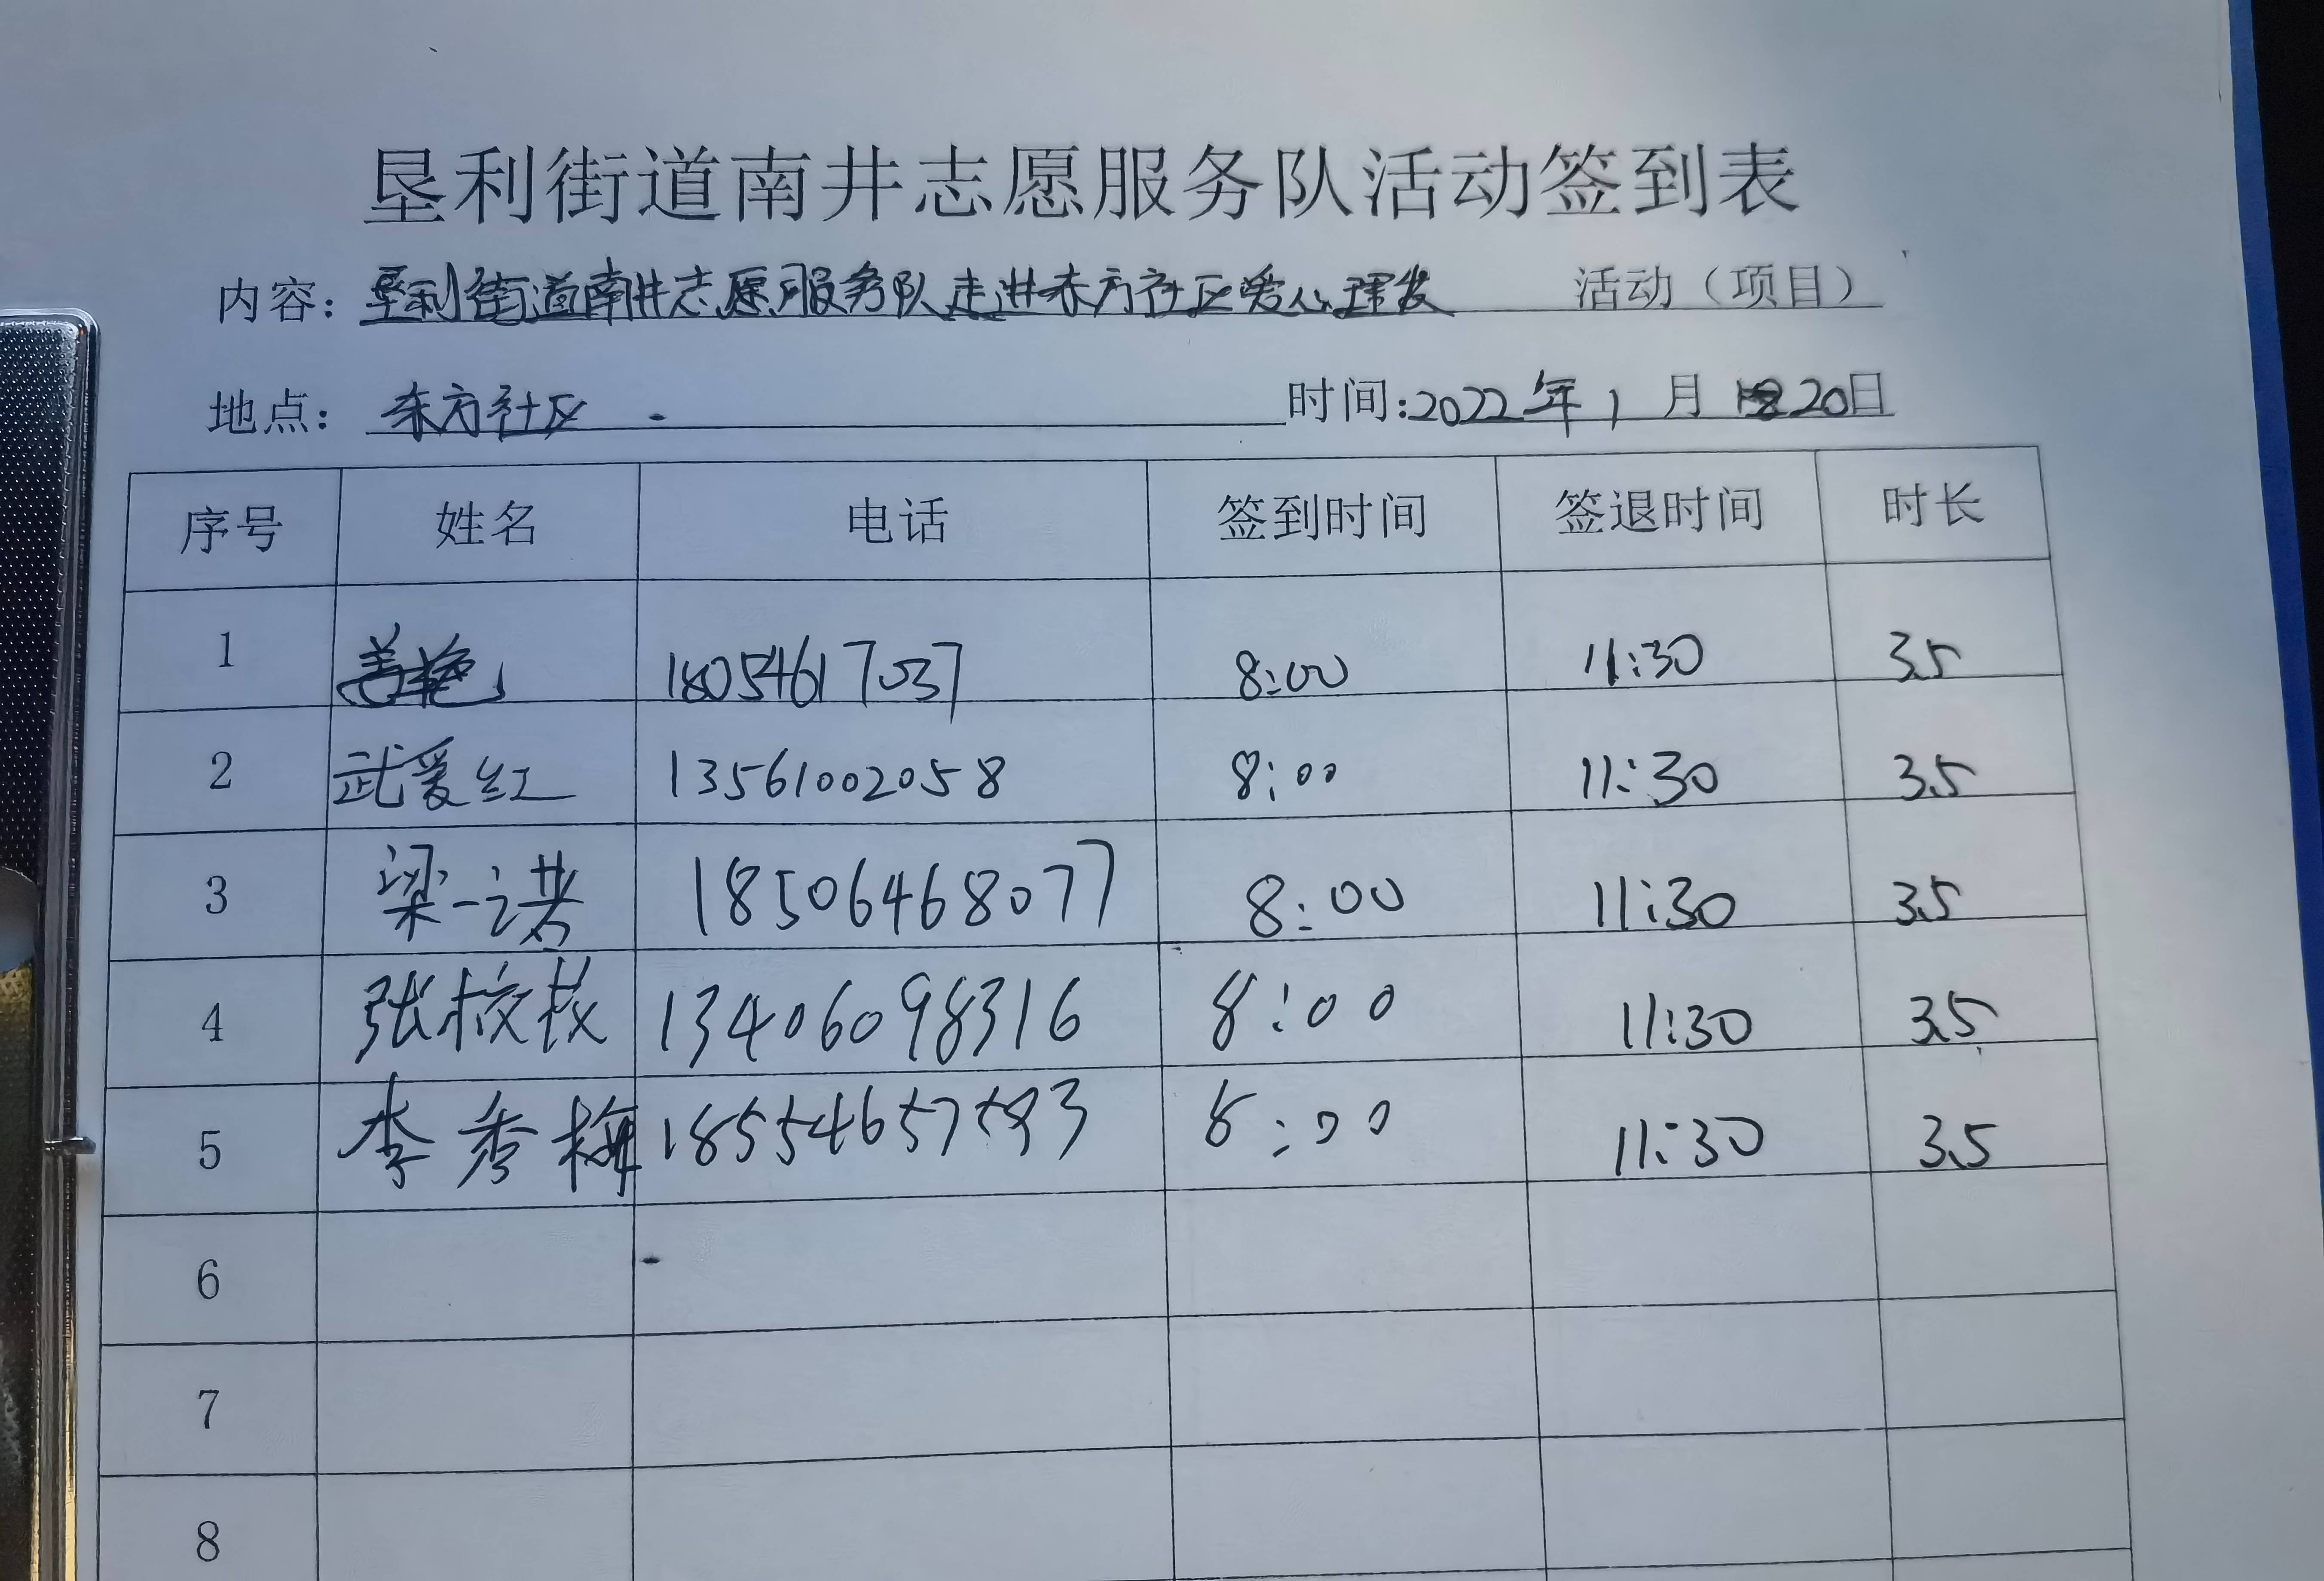 垦利街道南井志愿服务队活动签到表
内容：垦利街道南井志愿服务队走进东方社区爱心理发 活动（项目）
地点：东方社区 时间：2022年1月20日
序号 姓名 电话 签到时间 签退时间 时长
1 18054617037 8:00 11:30 3.5
2 武爱红 13561002058 8:00 11:30 3.5
3 梁一诺 18506468077 8:00 11:30 3.5
4 张 13406098316 8:00 11:30 3.5
5 李秀梅 18554657593 8:00 11:30 3.5
6
7
8